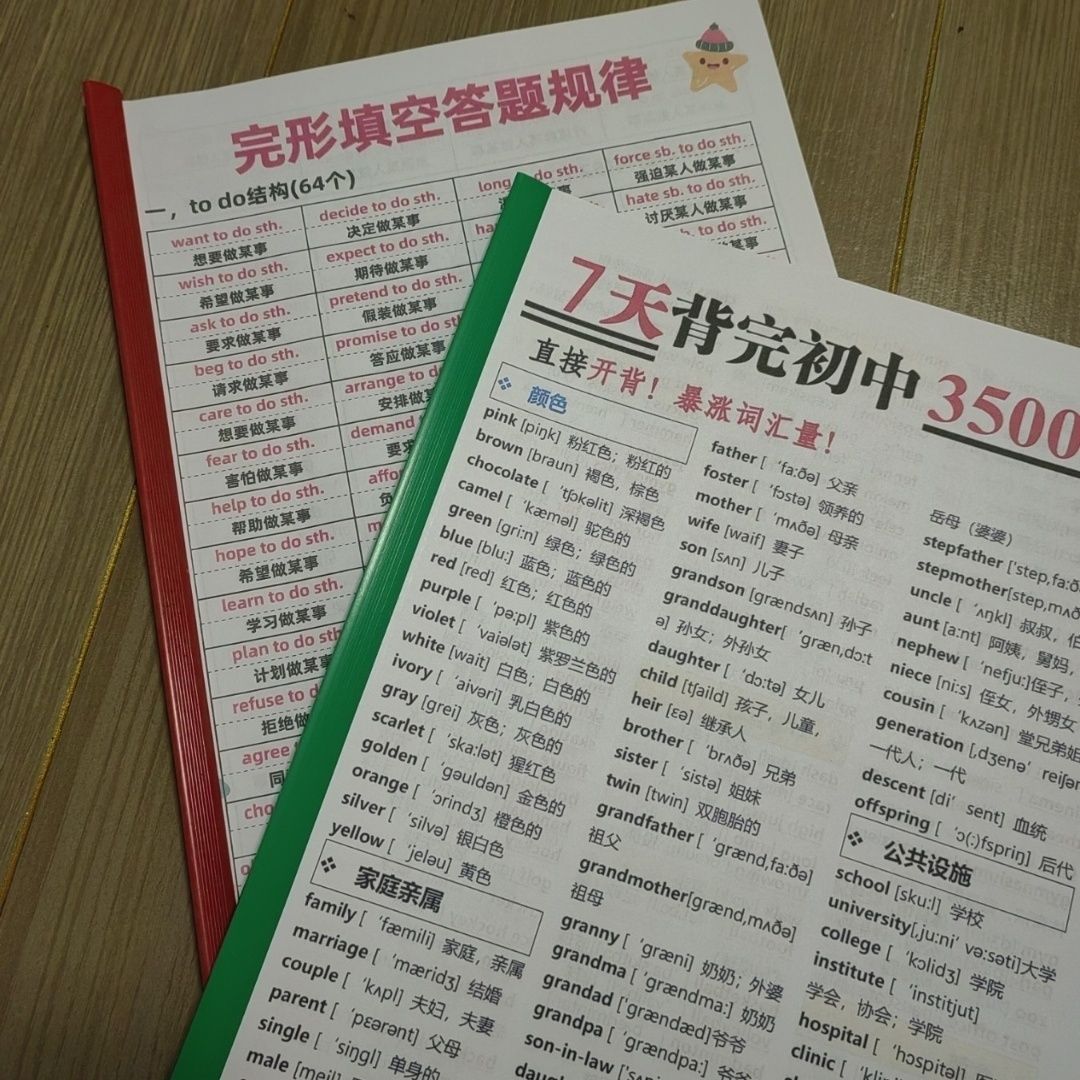 完形填空答题规律
一，to do结构(64个)
want to do sth.
想要做某事
wish to do sth.
希望做某事
ask to do sth.
要求做某事
beg to do sth.
请求做某事
care to do sth.
想要做某事
fear to do sth.
害怕做某事
help to do sth.
帮助做某事
hope to do sth.
希望做某事
learn to do sth.
学习做某事
plan to do sth
计划做某事
refuse to d
拒绝做
agree
同
cho
decide to do sth.
决定做某事
expect to do sth.
期待做某事
pretend to do sth.
假装做某事
promise to do sth.
答应做某事
arrange to d
安排做
demand
要求
affor
long
do sth.
force sb. to do sth.
强迫某人做某事
hate sb. to do sth.
讨厌某人做某事
7天背完初中3500
直接开背！暴涨词汇量！
颜色
pink [piŋk] 粉红色；粉红的
brown [braun] 褐色，棕色
chocolate [ 'tʃɒkəlit] 深褐色
camel [ 'kæməl] 驼色的
green [gri:n] 绿色；绿色的
blue [blu:] 蓝色；蓝色的
red [red] 红色；红色的
purple [ 'pə:pl] 紫色的
violet [ 'vaiələt] 紫罗兰色的
white [wait] 白色；白色的
ivory [ 'aivəri] 乳白色的
gray [grei] 灰色；灰色的
scarlet [ 'ska:lət] 猩红色
golden [ 'gəuldən] 金色的
orange [ 'ɔrindʒ] 橙色的
silver [ 'silvə] 银白色
yellow [ 'jeləu] 黄色
家庭亲属
family [ 'fæmili] 家庭，亲属
marriage [ 'mæridʒ] 结婚
couple [ 'kʌpl] 夫妇，夫妻
parent [ 'pɛərənt] 父母
single [ 'siŋgl] 单身的
male [meil]
father [ 'fa:ðə] 父亲
foster [ 'fɔstə] 领养的
mother [ 'mʌðə] 母亲
wife [waif] 妻子
son [sʌn] 儿子
grandson [grændsʌn] 孙子
granddaughter[ 'græn,dɔ:t
ə] 孙女；外孙女
daughter [ 'dɔ:tə] 女儿
child [tʃaild] 孩子，儿童，
heir [ɛə] 继承人
brother [ 'brʌðə] 兄弟
sister [ 'sistə] 姐妹
twin [twin] 双胞胎的
grandfather [ 'grænd,fa:ðə]
祖父
grandmother[grænd,mʌðə]
祖母
granny [ 'græni] 奶奶；外婆
grandma [ 'grændma:] 奶奶
grandad ['grændæd]爷爷
grandpa [ 'grændpa:] 爷爷
son-in-law
岳母（婆婆）
stepfather ['step,fa:ð
stepmother[step,mʌð
uncle [ 'ʌŋkl] 叔叔，伯
aunt [a:nt] 阿姨，舅妈，
nephew [ 'nefju:]侄子，
niece [ni:s] 侄女，外甥女
cousin [ 'kʌzən] 堂兄弟姐
generation [,dʒenə' reiʃən
一代人；一代
descent [di' sent] 血统
offspring [ 'ɔ(:)fspriŋ] 后代
公共设施
school [sku:l] 学校
university[,ju:ni' və:səti]大学
college [ 'kɔlidʒ] 学院
institute [ 'institjut]
学会，协会；学院
hospital [ 'hɔspitəl]
clinic